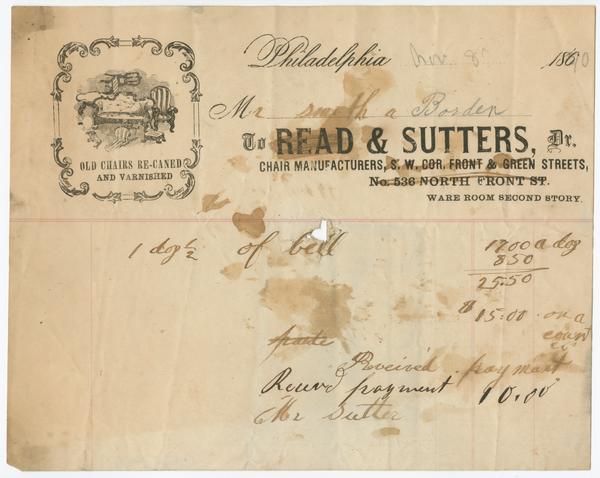 Philadelphia Nov. 8 1860
OLD CHAIRS RE-CANED
AND VARNISHED
Mr smoth a Borden
To READ & SUTTERS, Dr.
CHAIR MANUFACTURERS, S. W. COR. FRONT & GREEN STREETS,
No. 536 NORTH FRONT ST.
WARE ROOM SECOND STORY.
1 doz 1/2 of bell 1700 a doz
850
25.50
$15.00 on a
count
Received payment
Receved payment 10.00
Mr Sutter